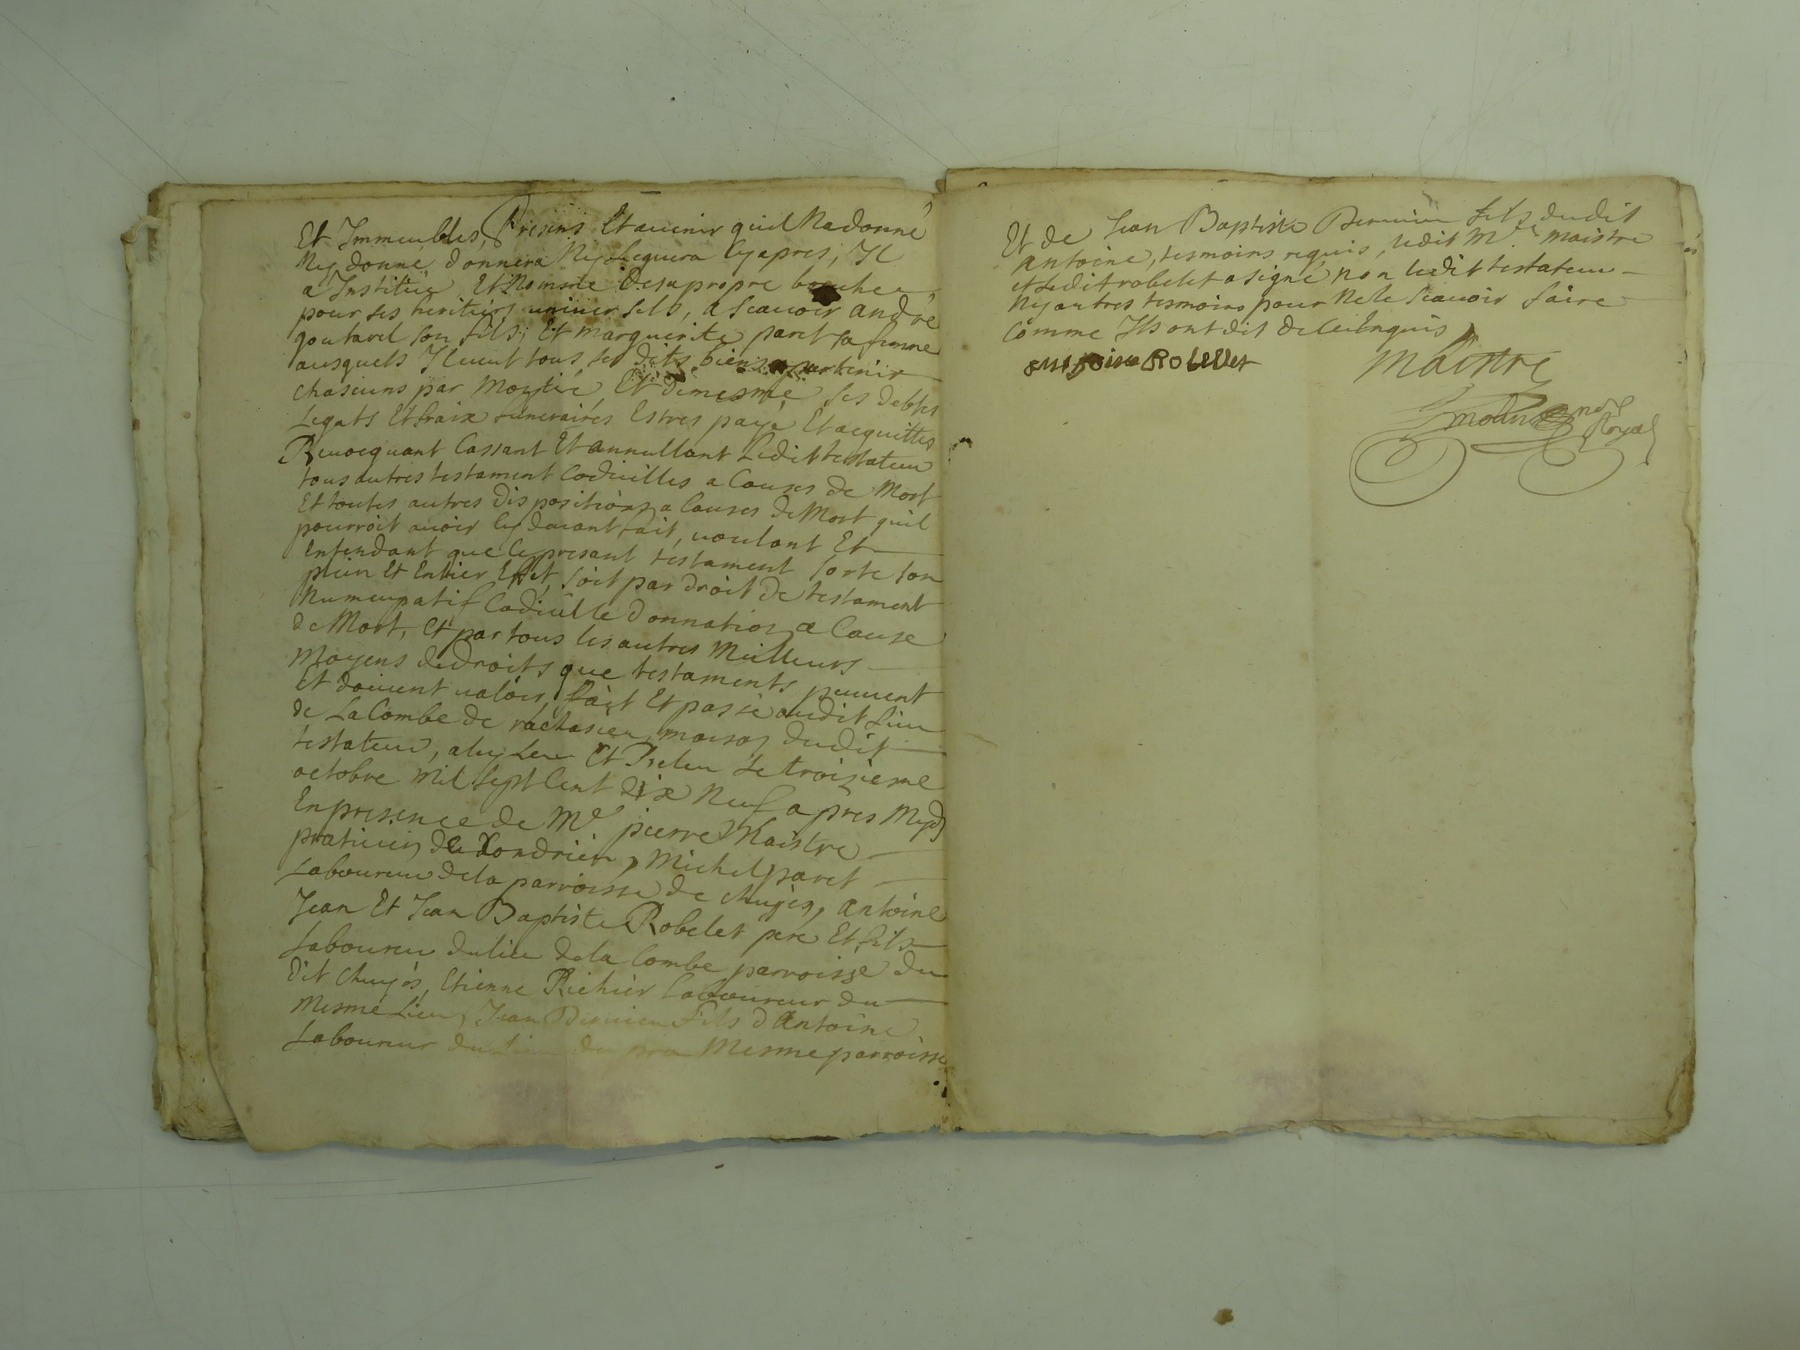 Et Immeubles, Presens Et auenir quil Na donné
Ny donne, donnera Ny Leguera Cy apres, Il
a Institué Et Nommé De sa propre bouche
pour ses heritiers uniuersels, a Scauoir andre
goutarel son fils, Et marguerite paret sa femme
ausquels Il ueut tous ses dits biens apartenir
chascuns par Moytié, Et de mesme ses debtes
Legats Et fraix funeraires Estres payé Et acquittes
Reuocquant Cassant Et annullant Ledit testateur
tous autres testament Codicilles a Causes de Mort
Et toutes autres dispositions a Causes de Mort quil
pourroit auoir Cy deuant fait, uoulant Et
Entendant que Ce presant testament sorte son
plein Et Entier Effet, soit par droit de testament
Numcupatif Codicille donnation a Cause
de Mort, Et par tous les autres Meilleurs
Moyens de droits que testaments peuuent
Et doiuent ualoir, fait Et passé audit Lieu
de La Combe de maison dudit
testateur, a luy Leu Et Releu Le troizieme
octobre mil sept Cent dix Neuf apres Midy
En presence de Me pierre Maistre
praticien de Condrieu, Michel paret
Laboureur de la parroisse de chuyes, Antoine
Jean Et Jean Baptiste Robelet pere Et fils
Laboureur du lieu de la Combe parroisse du
dit chuyes, Etienne Richier Laboureur du
Mesme Lieu, Jean fils d Antoine
Laboureur du Lieu du Mesme parroisse
Et de Jean Baptiste fils dudit
Antoine, tesmoins requis, Ledit Me maistre
et Ledit robelet a signé non Ledit testateur
Ny autres tesmoins pour Ne le Scauoir faire
Comme Ils ont dit de Ce Enquis
Robelet
Maistre
nore
Royal